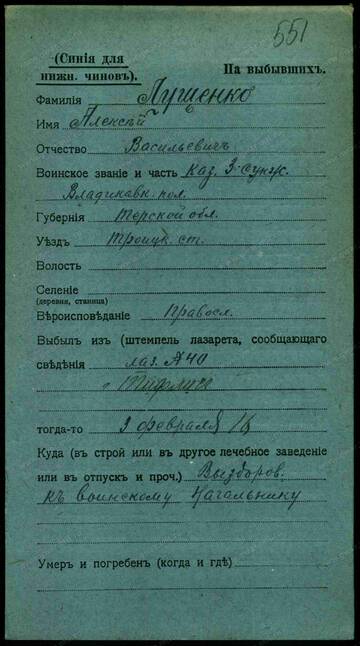 551
(Синія для
нижн. чиновъ).
На выбывшихъ.
Фамилія Лущенко
Имя Алексѣй
Отчество Васильевичъ
Воинское званіе и часть каз. 3 сунж.
Владикавк. пол.
Губернія Терской обл.
Уѣздъ Троицк. ст.
Волость
Селеніе
(деревня, станица)
Вѣроисповѣданіе Правосл.
Выбылъ изъ (штемпель лазарета, сообщающаго
свѣдѣнія лаз. № 40
г Тифлисъ
тогда-то 9 февраля 16
Куда (въ строй или въ другое лечебное заведеніе
или въ отпускъ и проч.) Выздоров.
къ Воинскому Начальнику
Умеръ и погребенъ (когда и гдѣ)